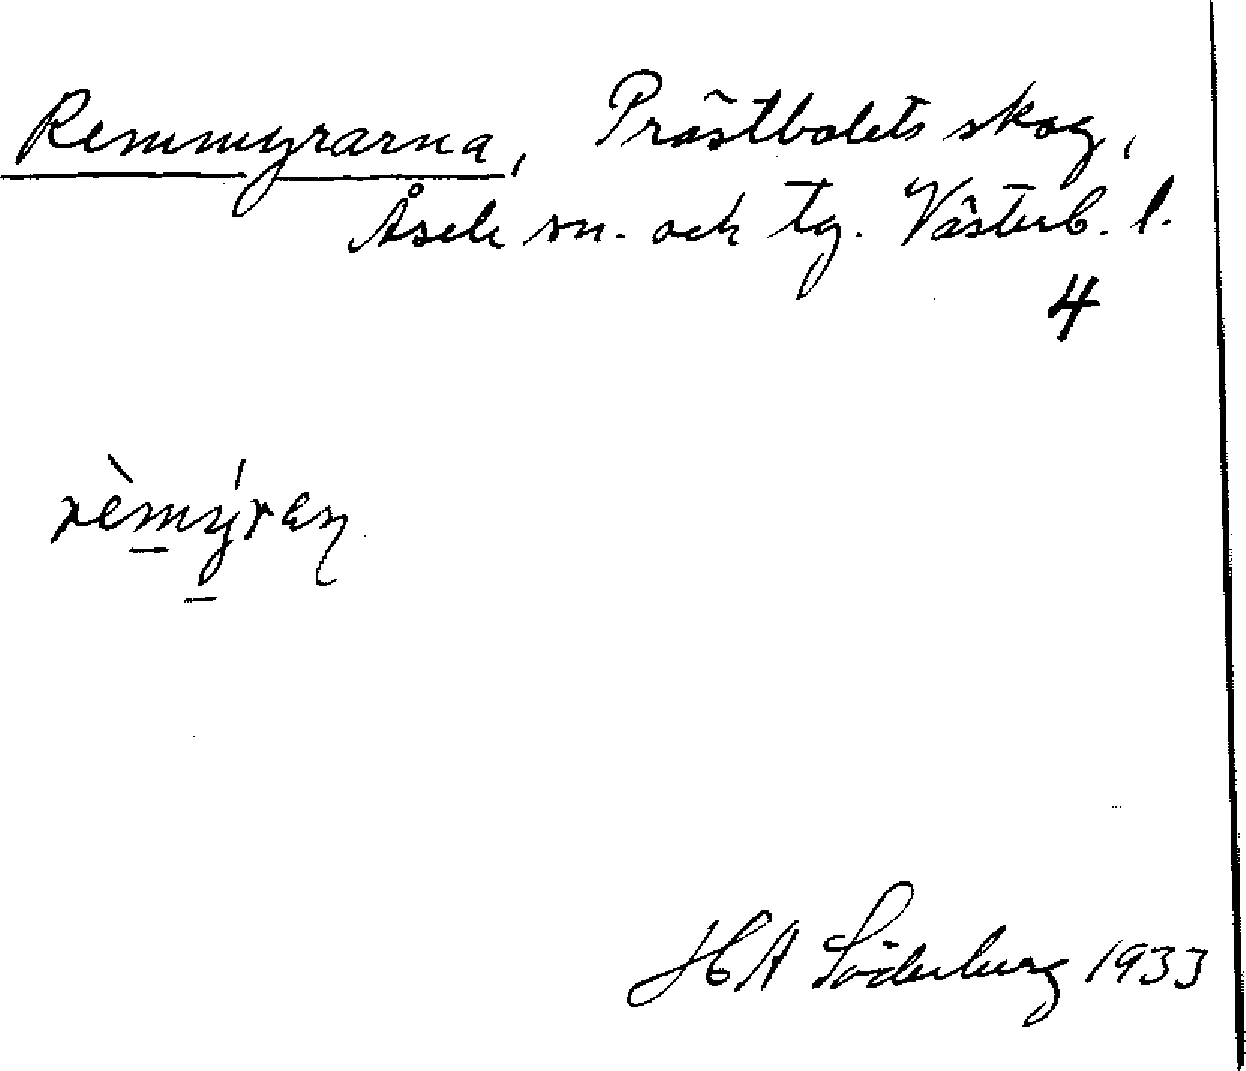 Remmyrarna, Prästbolets skog,
Åsele sn. och tg. Västerb. l.
4
rèmýren
HA Söderberg 1933